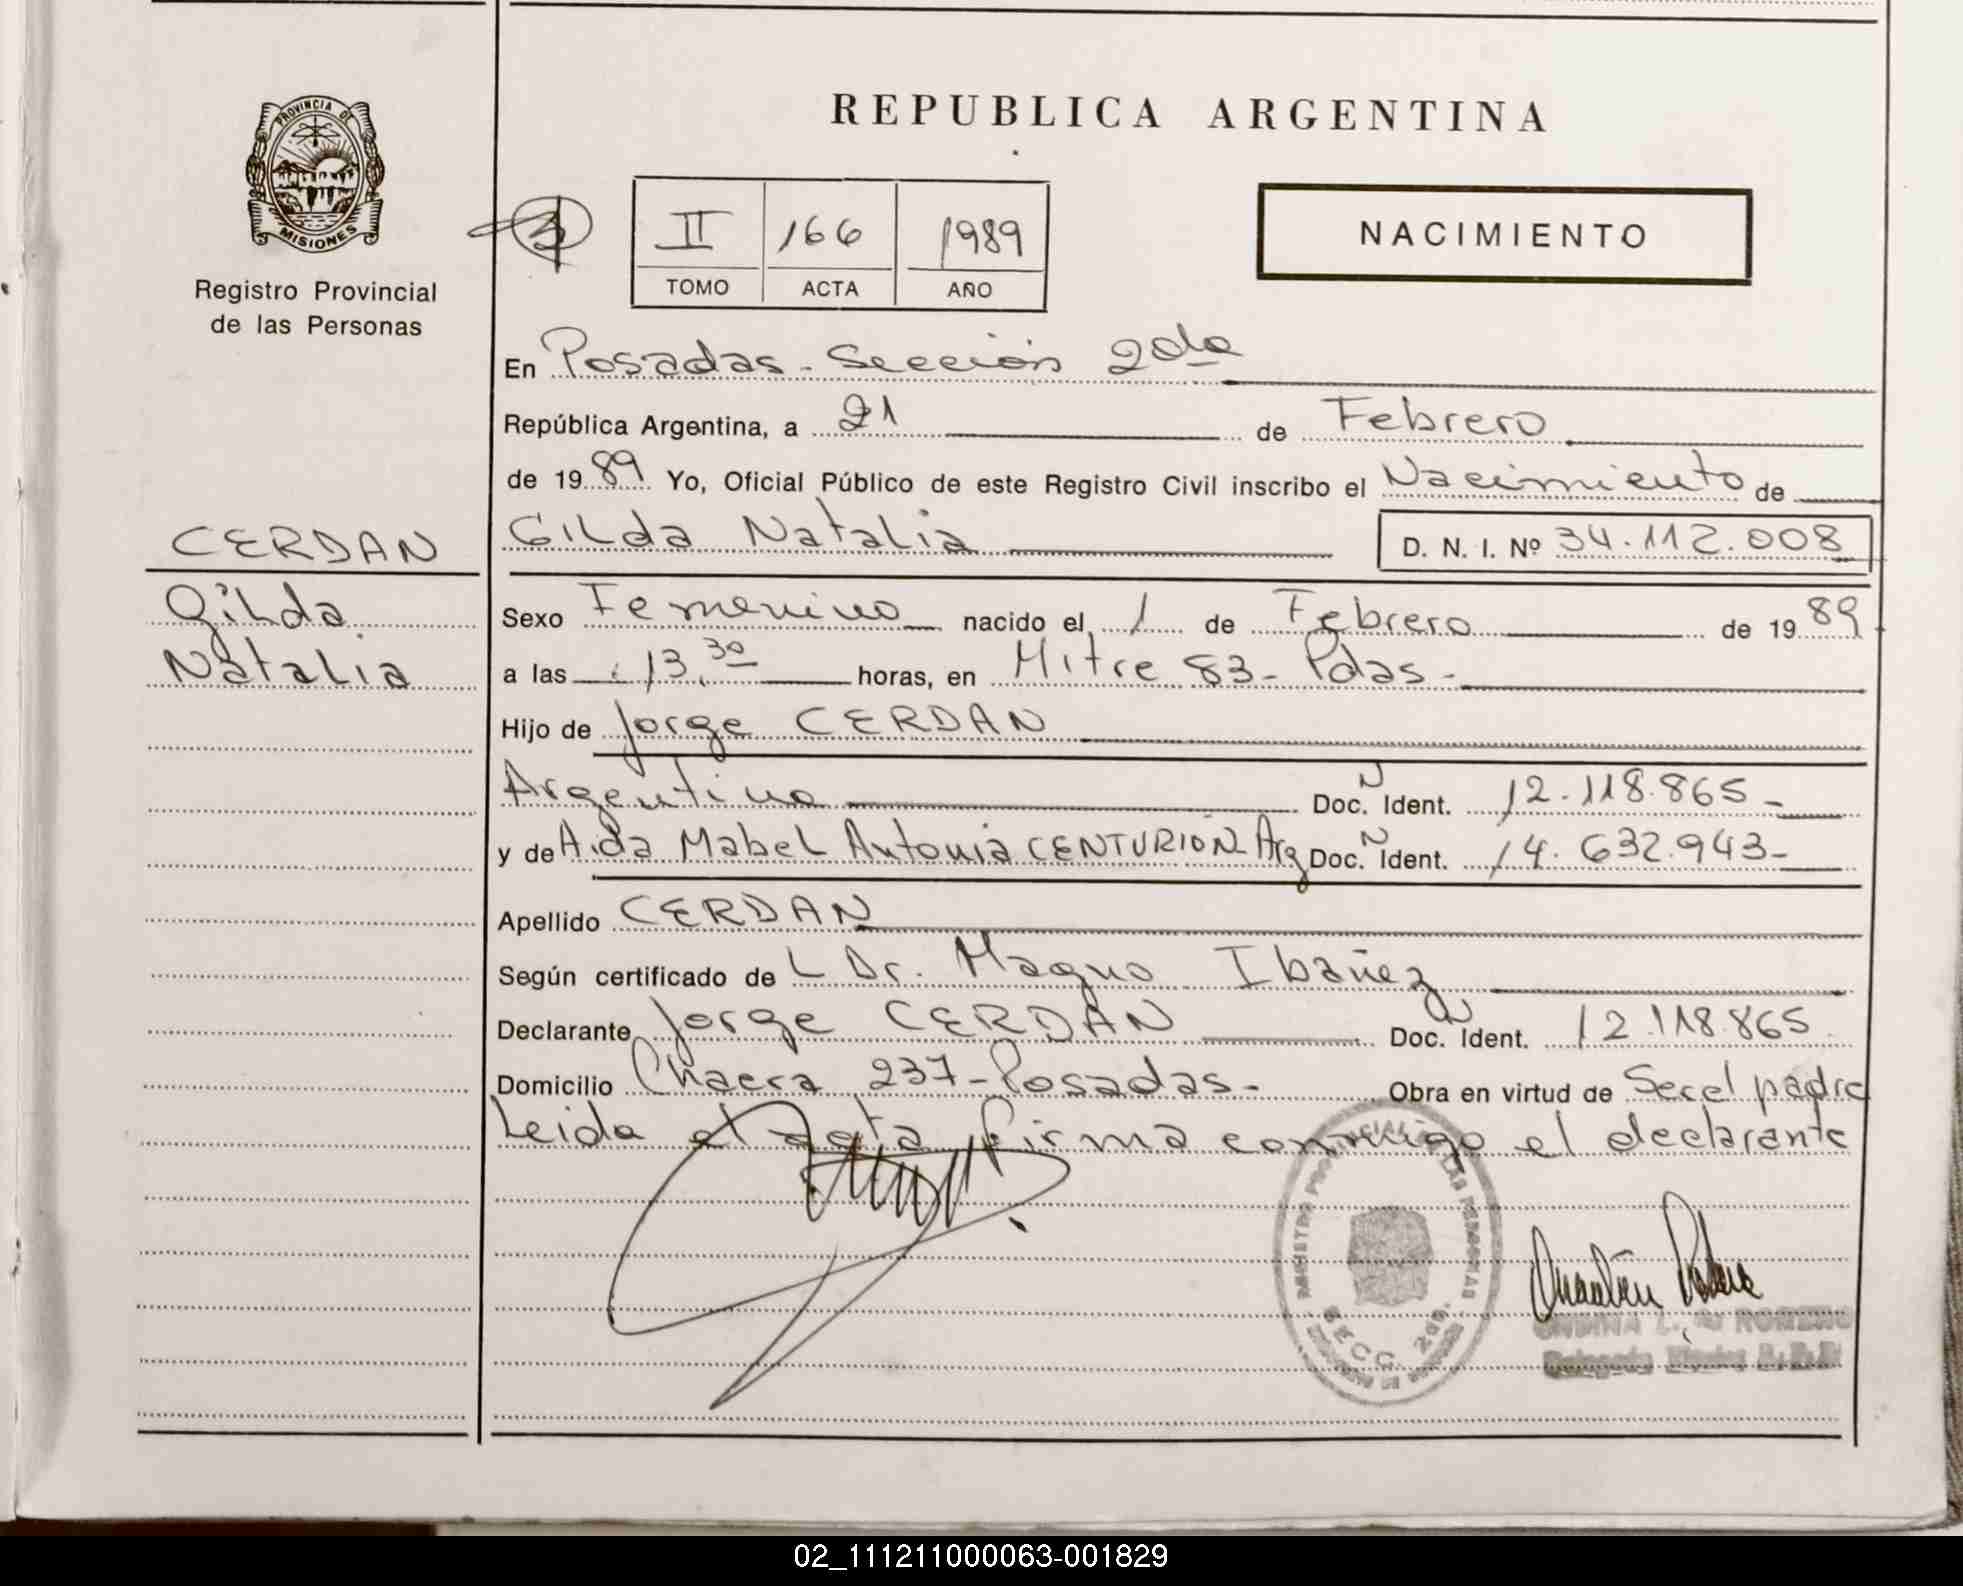 PROVINCIA DE
MISIONES
Registro Provincial
de las Personas
CERDAN
Gilda
Natalia
REPUBLICA ARGENTINA
II 166 1989
TOMO ACTA AÑO
NACIMIENTO
En Posadas - Sección 2da
República Argentina, a 21 de Febrero
de 1989 Yo, Oficial Público de este Registro Civil inscribo el Nacimiento de
Gilda Natalia D. N. I. Nº 34.112.008
Sexo Femenino nacido el 1 de Febrero de 1989
a las 13,30 horas, en Mitre 83 - Pdas -
Hijo de Jorge CERDAN
Argentino Doc. N Ident. 12.118.865 -
y de Aida Mabel Antonia CENTURION - Arg Doc. N Ident. 14.632.943 -
Apellido CERDAN
Según certificado de L Dr. Magno Ibañez
Declarante Jorge CERDAN Doc. N Ident. 12.118.865
Domicilio Chacra 237 - Posadas - Obra en virtud de Ser el padre
Leida el acta firma conmigo el declarante
SECC. 2da.
ROMERO
02_111211000063-001829